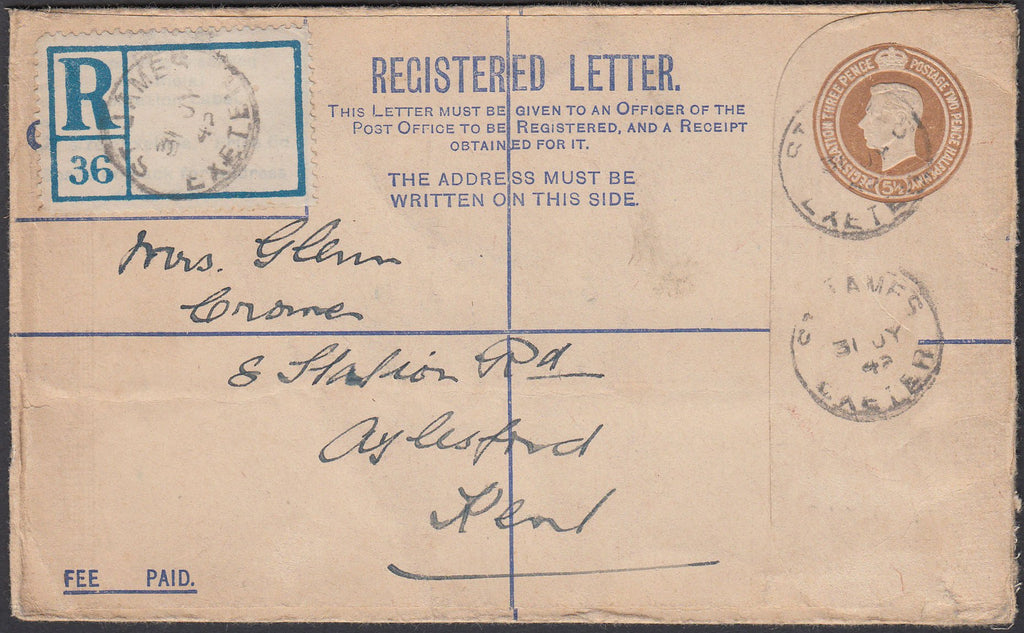 R
36
ST. JAMES
31 JY
42
EXETER
REGISTERED LETTER.
THIS LETTER MUST BE GIVEN TO AN OFFICER OF THE
POST OFFICE TO BE REGISTERED, AND A RECEIPT
OBTAINED FOR IT.
THE ADDRESS MUST BE
WRITTEN ON THIS SIDE.
REGISTRATION THREE PENCE POSTAGE TWO PENCE HALFPENNY
5½D
EXETER
Mrs. Glenn
Crome
8 Station Rd
Aylesford
Kent
ST. JAMES
31 JY
42
EXETER
FEE PAID.